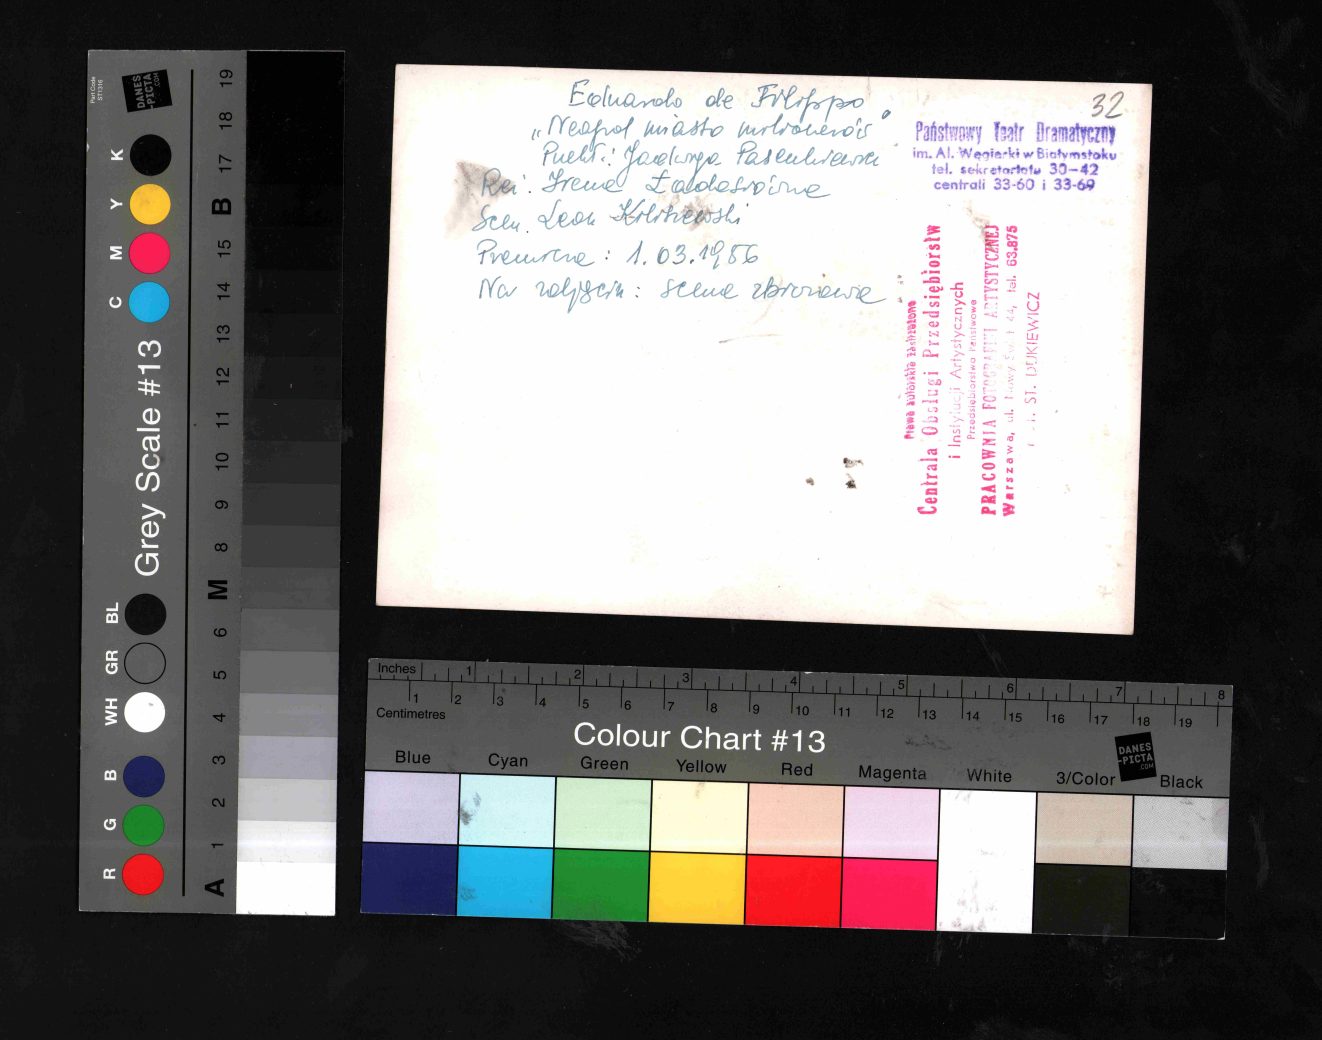 Eduardo de Filippo
„Neapol miasto milionerów"
Przekł.: Jadwiga Pasenkiewicz
Reż. Irena
Scen. Leon
Premiera: 1.03.1956
Na zdjęciu: scena zbiorowa
32
Państwowy Teatr Dramatyczny
im. Al. Węgierki w Białymstoku
tel. sekretariatu 30-42
centrali 33-60 i 33-69
Prawa autorskie zastrzeżone
Centrala Obsługi Przedsiębiorstw
i Instytucji Artystycznych
Przedsiębiorstwo Państwowe
PRACOWNIA FOTOGRAFII ARTYSTYCZNEJ
Warszawa, ul. Nowy Świat 44, tel. 63.875
ST. DUKIEWICZ
Part Code
ST1316
DANES
-PICTA
.COM
K
Y
M
C
Grey Scale #13
BL
GR
WH
B
G
R
19
18
17
B
15
14
13
12
11
10
9
8
M
6
5
4
3
2
1
A
Inches 1 2 3 4 5 6 7 8
1 2 3 4 5 6 7 8 9 10 11 12 13 14 15 16 17 18 19
Centimetres
Colour Chart #13
DANES
-PICTA
.COM
Blue Cyan Green Yellow Red Magenta White 3/Color Black